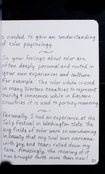 is needed to gain an understanding
of color psychology.
So your feelings about color are
often deeply personal and rooted in
your own experiences and culture.
For example, The color white is used
in many Western countries to represent
purity & innocence while in Eastern
countries it is used to portray mourning.
Personally, I had an experience at the
tulip festival in Washington state. The
big fields of color were so overwhelming
in beauty that my soul was overcome
with joy, and tears rolled down my
face. Amazingly, the memory of it
has brought tears more than once!